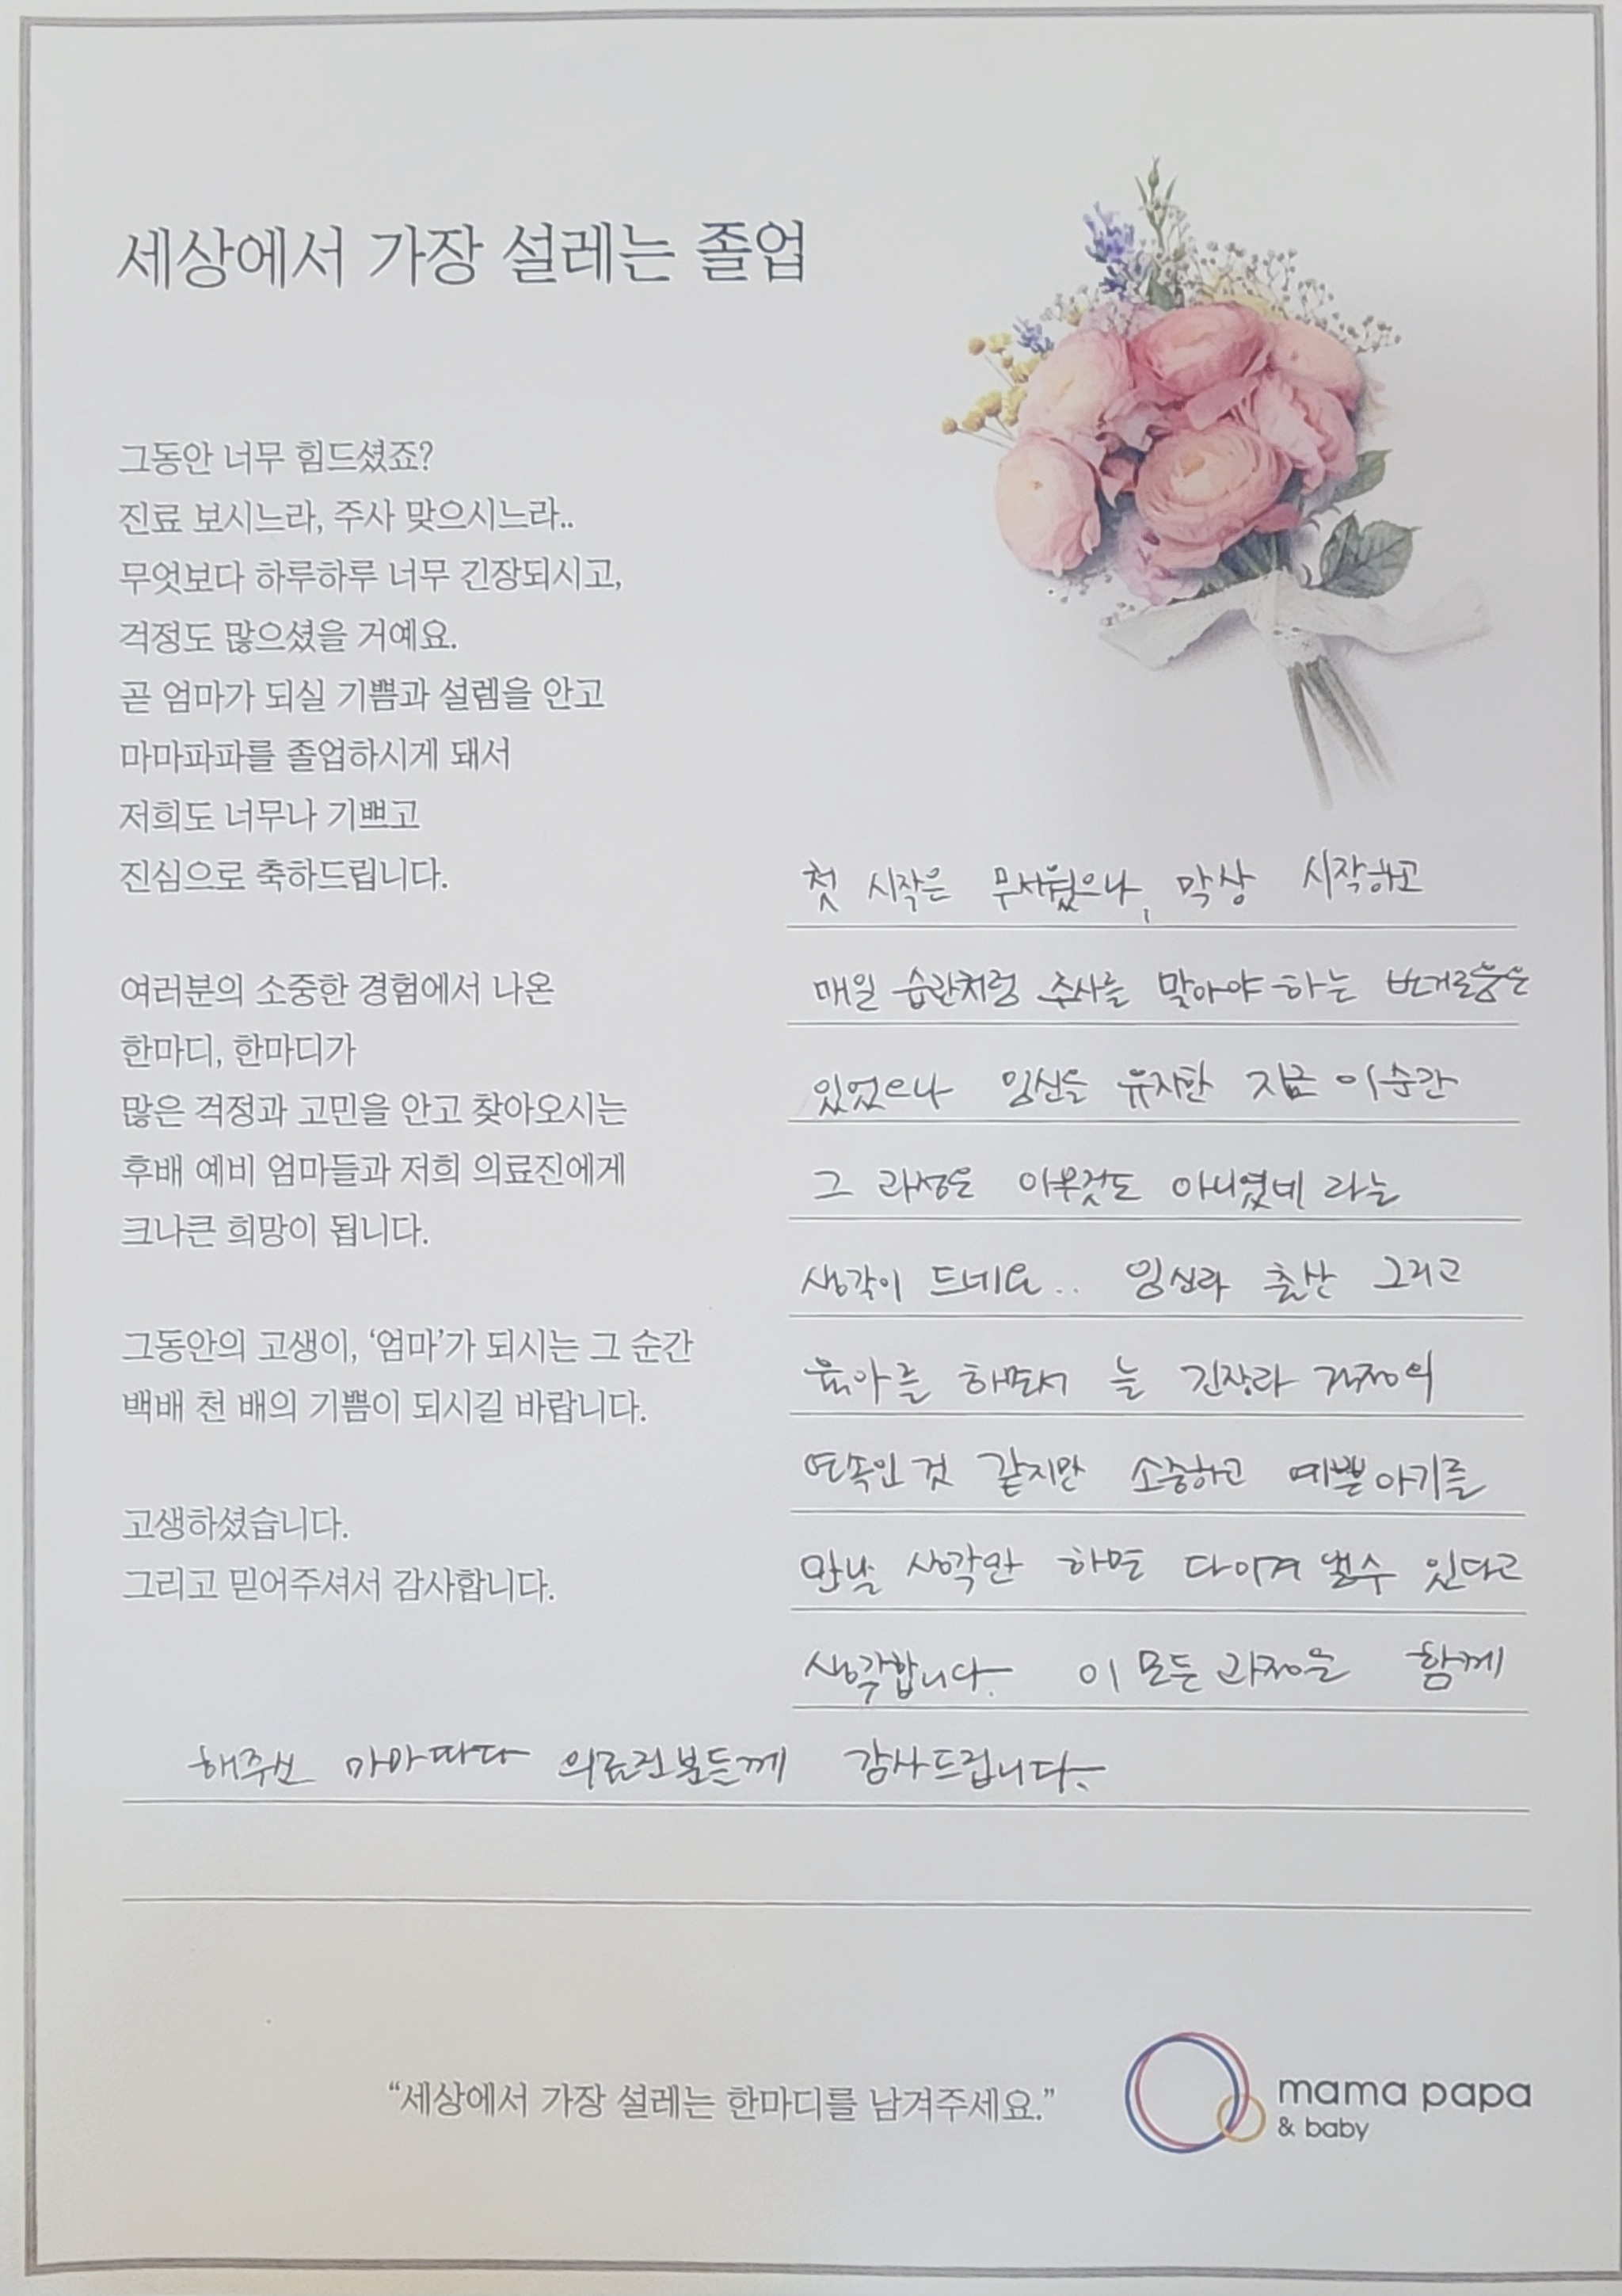 세상에서 가장 설레는 졸업
그동안 너무 힘드셨죠?
진료 보시느라, 주사 맞으시느라..
무엇보다 하루하루 너무 긴장되시고,
걱정도 많으셨을 거예요.
곧 엄마가 되실 기쁨과 설렘을 안고
마마파파를 졸업하시게 돼서
저희도 너무나 기쁘고
진심으로 축하드립니다.
여러분의 소중한 경험에서 나온
한마디, 한마디가
많은 걱정과 고민을 안고 찾아오시는
후배 예비 엄마들과 저희 의료진에게
크나큰 희망이 됩니다.
그동안의 고생이, ‘엄마’가 되시는 그 순간
백배 천 배의 기쁨이 되시길 바랍니다.
고생하셨습니다.
그리고 믿어주셔서 감사합니다.
첫 시작은 무서웠으나, 막상 시작하고
매일 습관처럼 주사를 맞아야 하는 번거로움은
있었으나 임신을 유지한 지금 이순간
그 과정은 아무것도 아니였네 라는
생각이 드네요.. 임신과 출산 그리고
육아를 하면서 늘 긴장과 걱정의
연속인 것 같지만 소중하고 예쁜 아기를
만날 생각만 하면 다 이겨 낼수 있다고
생각합니다. 이 모든 과정을 함께
해주신 마마파파 의료진분들께 감사드립니다.
“세상에서 가장 설레는 한마디를 남겨주세요.”
mama papa
& baby